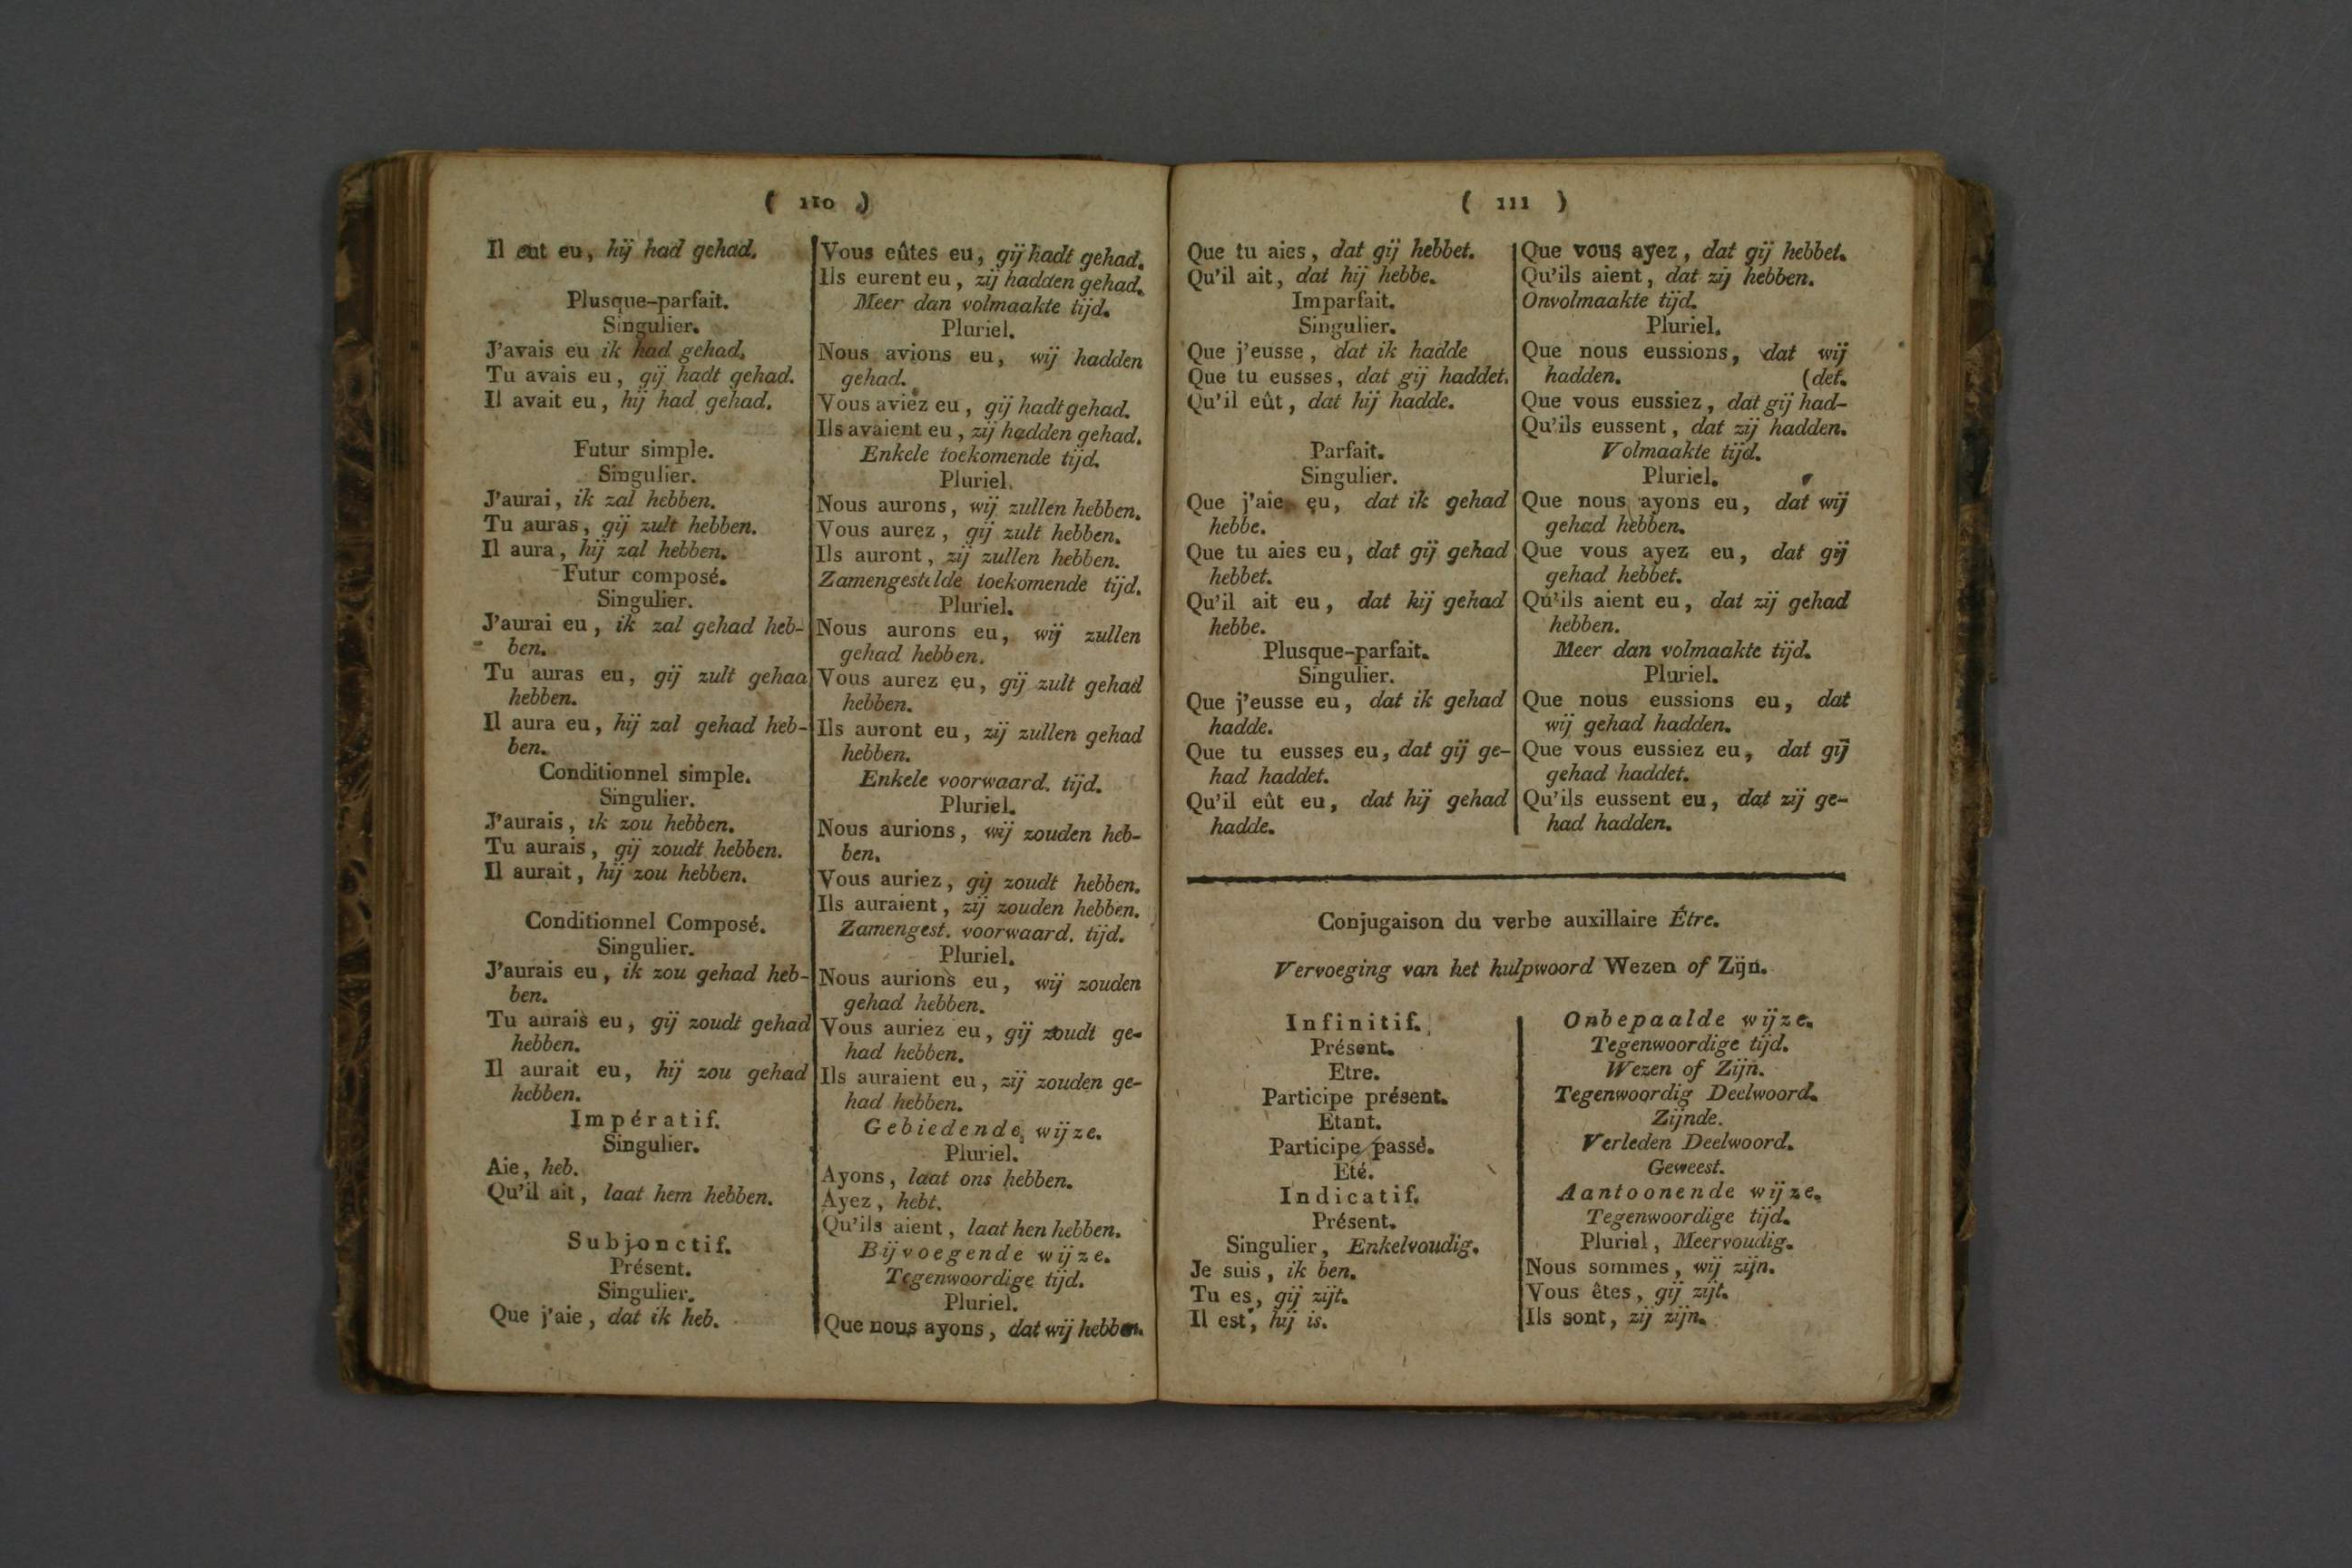 ( 110 )
Il eut eu, hij had gehad.
Plusque-parfait.
Singulier.
J'avais eu ik had gehad.
Tu avais eu, gij hadt gehad.
Il avait eu, hij had gehad.
Futur simple.
Singulier.
J'aurai, ik zal hebben.
Tu auras, gij zult hebben.
Il aura, hij zal hebben.
Futur composé.
Singulier.
J'aurai eu, ik zal gehad heb-
ben.
Tu auras eu, gij zult gehad
hebben.
Il aura eu, hij zal gehad heb-
ben.
Conditionnel simple.
Singulier.
J'aurais, ik zou hebben.
Tu aurais, gij zoudt hebben.
Il aurait, hij zou hebben.
Conditionnel Composé.
Singulier.
J'aurais eu, ik zou gehad heb-
ben.
Tu aurais eu, gij zoudt gehad
hebben.
Il aurait eu, hij zou gehad
hebben.
Impératif.
Singulier.
Aie, heb.
Qu'il ait, laat hem hebben.
Subjonctif.
Présent.
Singulier.
Que j'aie, dat ik heb.
Vous eûtes eu, gij hadt gehad.
Ils eurent eu, zij hadden gehad.
Meer dan volmaakte tijd.
Pluriel.
Nous avions eu, wij hadden
gehad.
Vous aviez eu, gij hadt gehad.
Ils avaient eu, zij hadden gehad.
Enkele toekomende tijd.
Pluriel.
Nous aurons, wij zullen hebben.
Vous aurez, gij zult hebben.
Ils auront, zij zullen hebben.
Zamengestelde toekomende tijd.
Pluriel.
Nous aurons eu, wij zullen
gehad hebben.
Vous aurez eu, gij zult gehad
hebben.
Ils auront eu, zij zullen gehad
hebben.
Enkele voorwaard. tijd.
Pluriel.
Nous aurions, wij zouden heb-
ben.
Vous auriez, gij zoudt hebben.
Ils auraient, zij zouden hebben.
Zamengest. voorwaard. tijd.
Pluriel.
Nous aurions eu, wij zouden
gehad hebben.
Vous auriez eu, gij zoudt ge-
had hebben.
Ils auraient eu, zij zouden ge-
had hebben.
Gebiedende wijze.
Pluriel.
Ayons, laat ons hebben.
Ayez, hebt.
Qu'ils aient, laat hen hebben.
Bijvoegende wijze.
Tegenwoordige tijd.
Pluriel.
Que nous ayons, dat wij hebben.
( 111 )
Que tu aies, dat gij hebbet.
Qu'il ait, dat hij hebbe.
Imparfait.
Singulier.
Que j'eusse, dat ik hadde
Que tu eusses, dat gij haddet.
Qu'il eût, dat hij hadde.
Parfait.
Singulier.
Que j'aie eu, dat ik gehad
hebbe.
Que tu aies eu, dat gij gehad
hebbet.
Qu'il ait eu, dat hij gehad
hebbe.
Plusque-parfait.
Singulier.
Que j'eusse eu, dat ik gehad
hadde.
Que tu eusses eu, dat gij ge-
had haddet.
Qu'il eût eu, dat hij gehad
hadde.
Que vous ayez, dat gij hebbet.
Qu'ils aient, dat zij hebben.
Onvolmaakte tijd.
Pluriel.
Que nous eussions, dat wij
hadden. (det.
Que vous eussiez, dat gij had-
Qu'ils eussent, dat zij hadden.
Volmaakte tijd.
Pluriel.
Que nous ayons eu, dat wij
gehad hebben.
Que vous ayez eu, dat gij
gehad hebbet.
Qu'ils aient eu, dat zij gehad
hebben.
Meer dan volmaakte tijd.
Pluriel.
Que nous eussions eu, dat
wij gehad hadden.
Que vous eussiez eu, dat gij
gehad haddet.
Qu'ils eussent eu, dat zij ge-
had hadden.
Conjugaison du verbe auxillaire Être.
Vervoeging van het hulpwoord Wezen of Zijn.
Infinitif.
Présent.
Etre.
Participe présent.
Etant.
Participe passé.
Eté.
Indicatif.
Présent.
Singulier, Enkelvoudig.
Je suis, ik ben.
Tu es, gij zijt.
Il est, hij is.
Onbepaalde wijze.
Tegenwoordige tijd.
Wezen of Zijn.
Tegenwoordig Deelwoord.
Zijnde.
Verleden Deelwoord.
Geweest.
Aantoonende wijze.
Tegenwoordige tijd.
Pluriel, Meervoudig.
Nous sommes, wij zijn.
Vous êtes, gij zijt.
Ils sont, zij zijn.